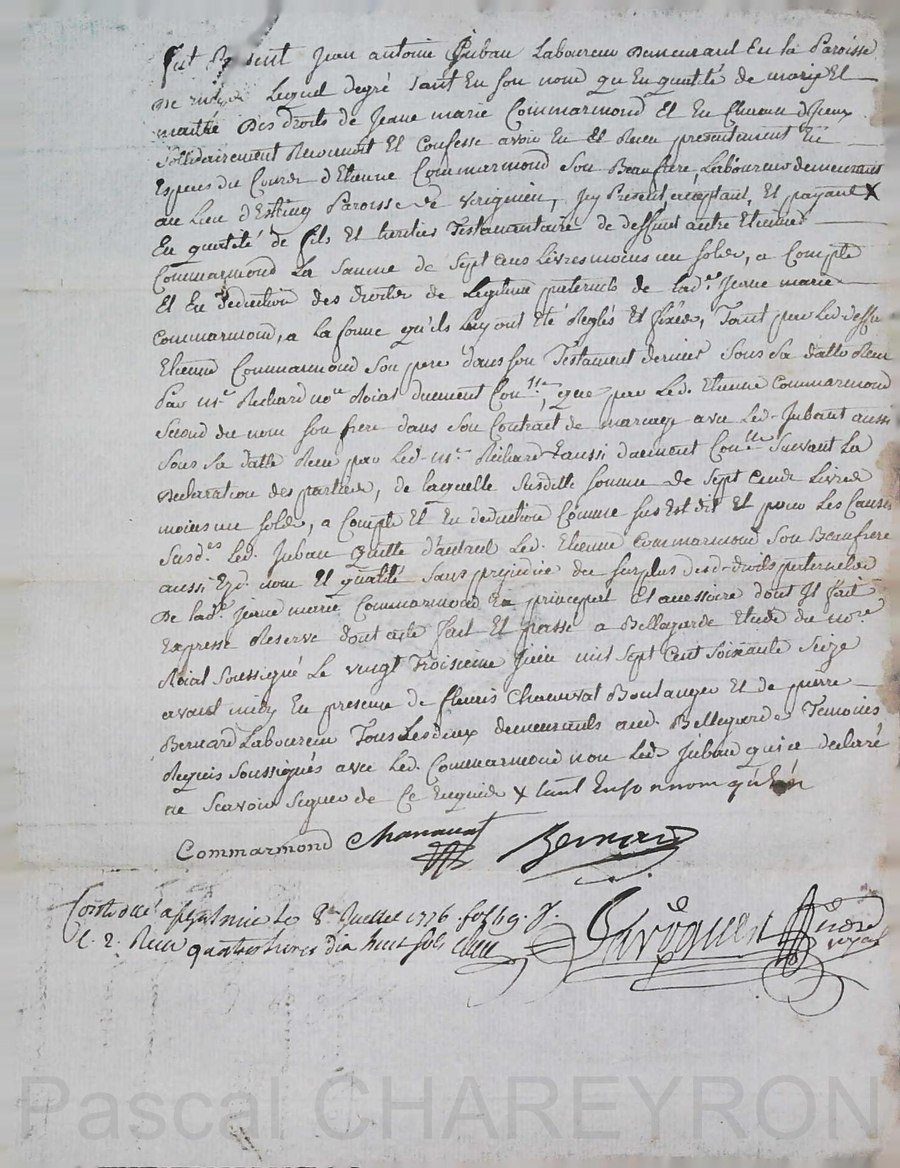 Fut Present Jean antoine Juban Laboureur Demeurant En la Paroisse
De Lequel degré tant En Son nom qu'En qualité de mary Et
maitre Des droits de Jeane marie Commarmond Et En Chacun d'Iceux
Solidairement Reconnoit Et Confesse avoir Eu et Recu presentement En
Especes du Cours d'Etienne Commarmond Son Beaufrere, Laboureur demeurant
au Lieu d' Paroisse de Virignieu, Icy Present, acceptant, Et payant X
En qualité de fils Et heritier Testamentaire de deffunt autre Etienne
Commarmond La Somme de Sept cens Livres moins un Solds, a Compte
Et En deduction des droits de Legitime paternels de lade. Jeane marie
Commarmond, a la forme qu'ils Luy ont Eté Reglés Et fixés, Tant par Led. deffu
Etienne Commarmond Son pere dans son Testament dernier Sous Sa datte Recu
Par me. Richard nore. Roial duement Conllé., que par Led. Etienne Commarmond
Second du nom Son frere dans Son Contrat de mariage avec Led. Jubant aussi
Sous Sa datte Recu par Led. me. Richard Et aussi duement Conllé. Suivant La
Declaration des parties, de laquelle Susditte Somme de Sept Cents Livres
moins un Solds, a Compte Et En deduction Comme Sus Est dit Et pour Les Causes
Susdes. Led. Juban quitte d'autant Led. Etienne Commarmond Son Beaufrere
aussi Esd. nom Et qualité Sans prejudice du Surplus desd. droits paternels
De lade. Jeane marie Commarmond En principal Et accessoire dont Il fait
Expresse Reserve dont acte fait Et passé a Bellegarde Etude du nore.
Roial Soussigné Le vingt Troisieme Juin mil Sept Cent Soixante Seize
avant midy En presence de fleuris Chanavat Boulanger Et de pierre
Bernard Laboureur Tous Les deux demeurants aud. Bellegarde Temoins
Requis Soussignés avec Led. Commarmond non Led. Juban qui a declaré
ne Scavoir Signer de Ce Enquis X tant En son nom qu'En
Commarmond Chanavat Bernard
Controllé a le 8e. Juillet 1776. fol 69.
Recu quatre livres dix huit Sols
Pascal CHAREYRON